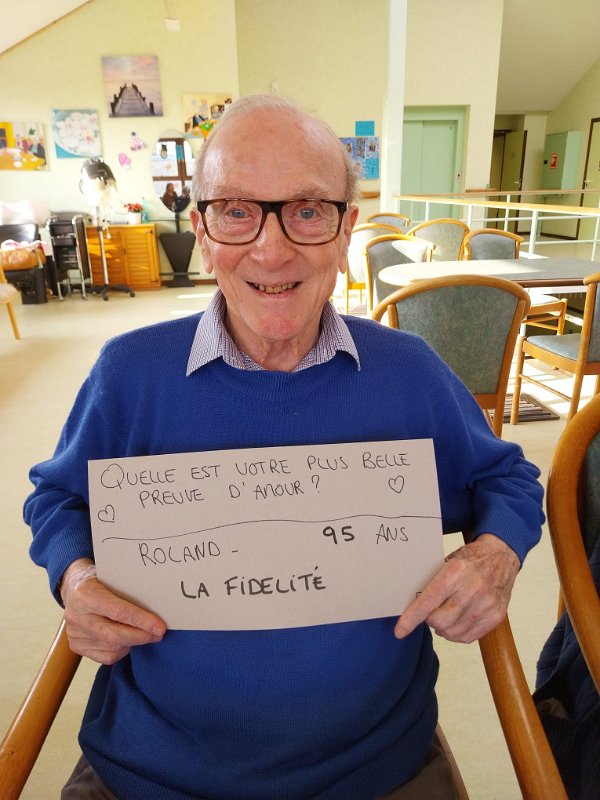 QUELLE EST VOTRE PLUS BELLE
PREUVE D'AMOUR ?
ROLAND - 95 ANS
LA FIDELITÉ